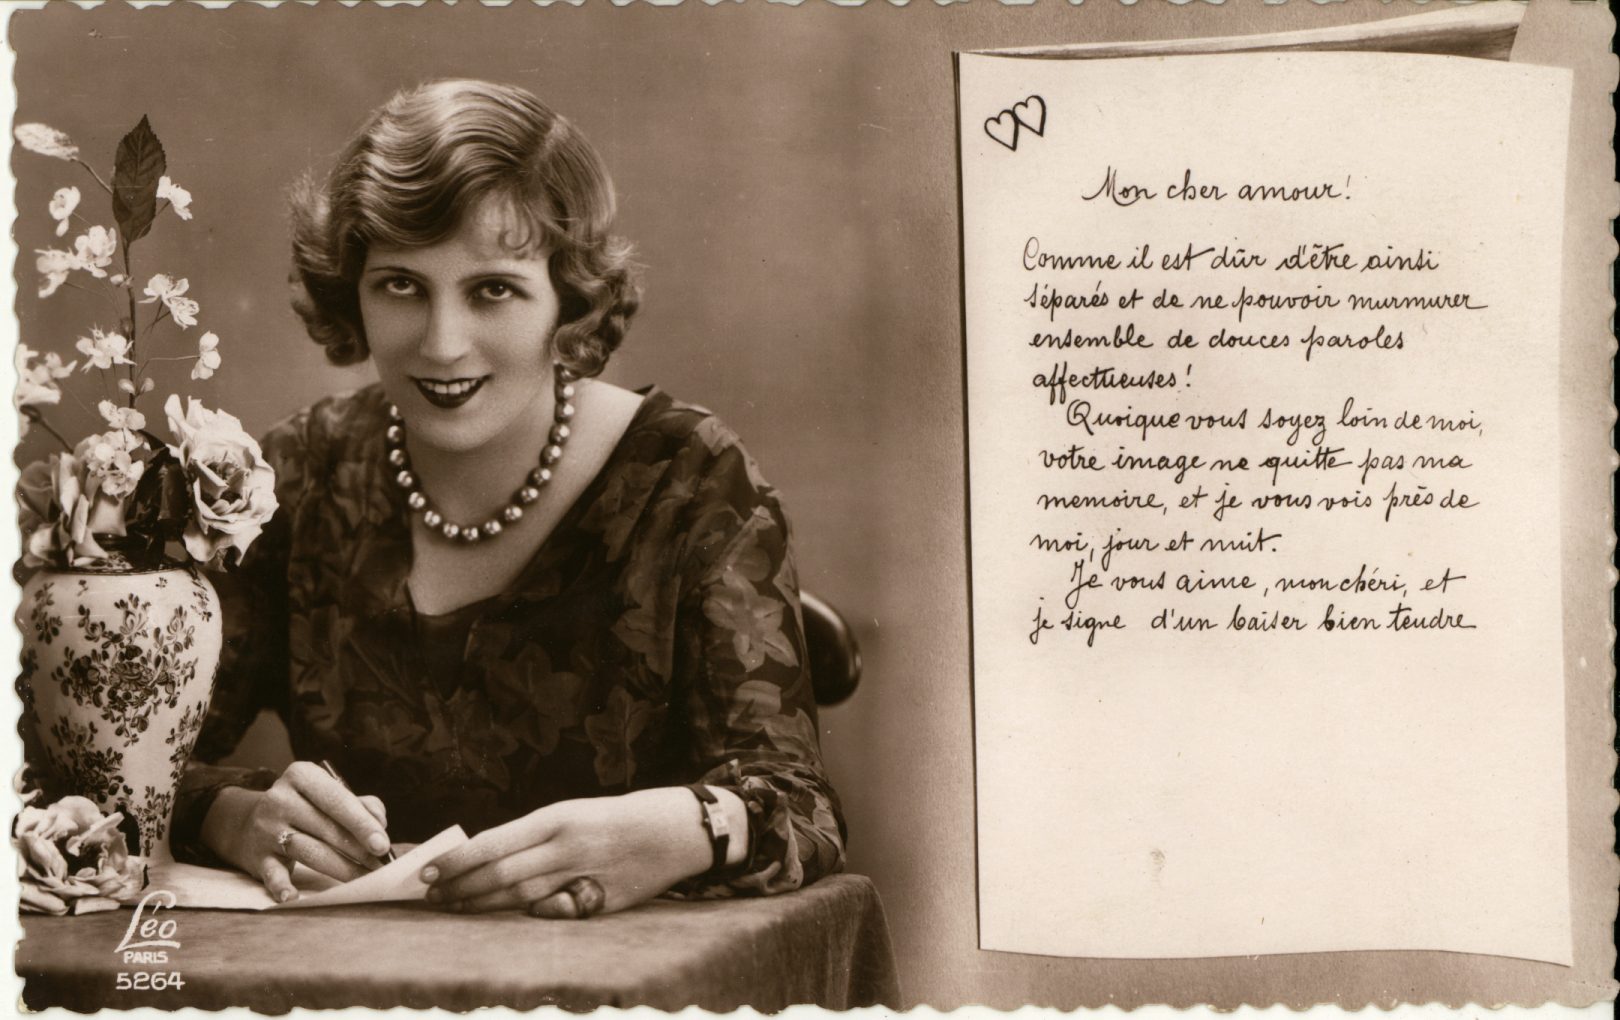 Mon cher amour!
Comme il est dûr d'être ainsi
séparés et de ne pouvoir murmurer
ensemble de douces paroles
affectueuses!
Quoique vous soyez loin de moi,
votre image ne quitte pas ma
memoire, et je vous vois près de
moi, jour et nuit.
Je vous aime, mon chéri, et
je signe d'un baiser bien tendre
Léo
PARIS
5264